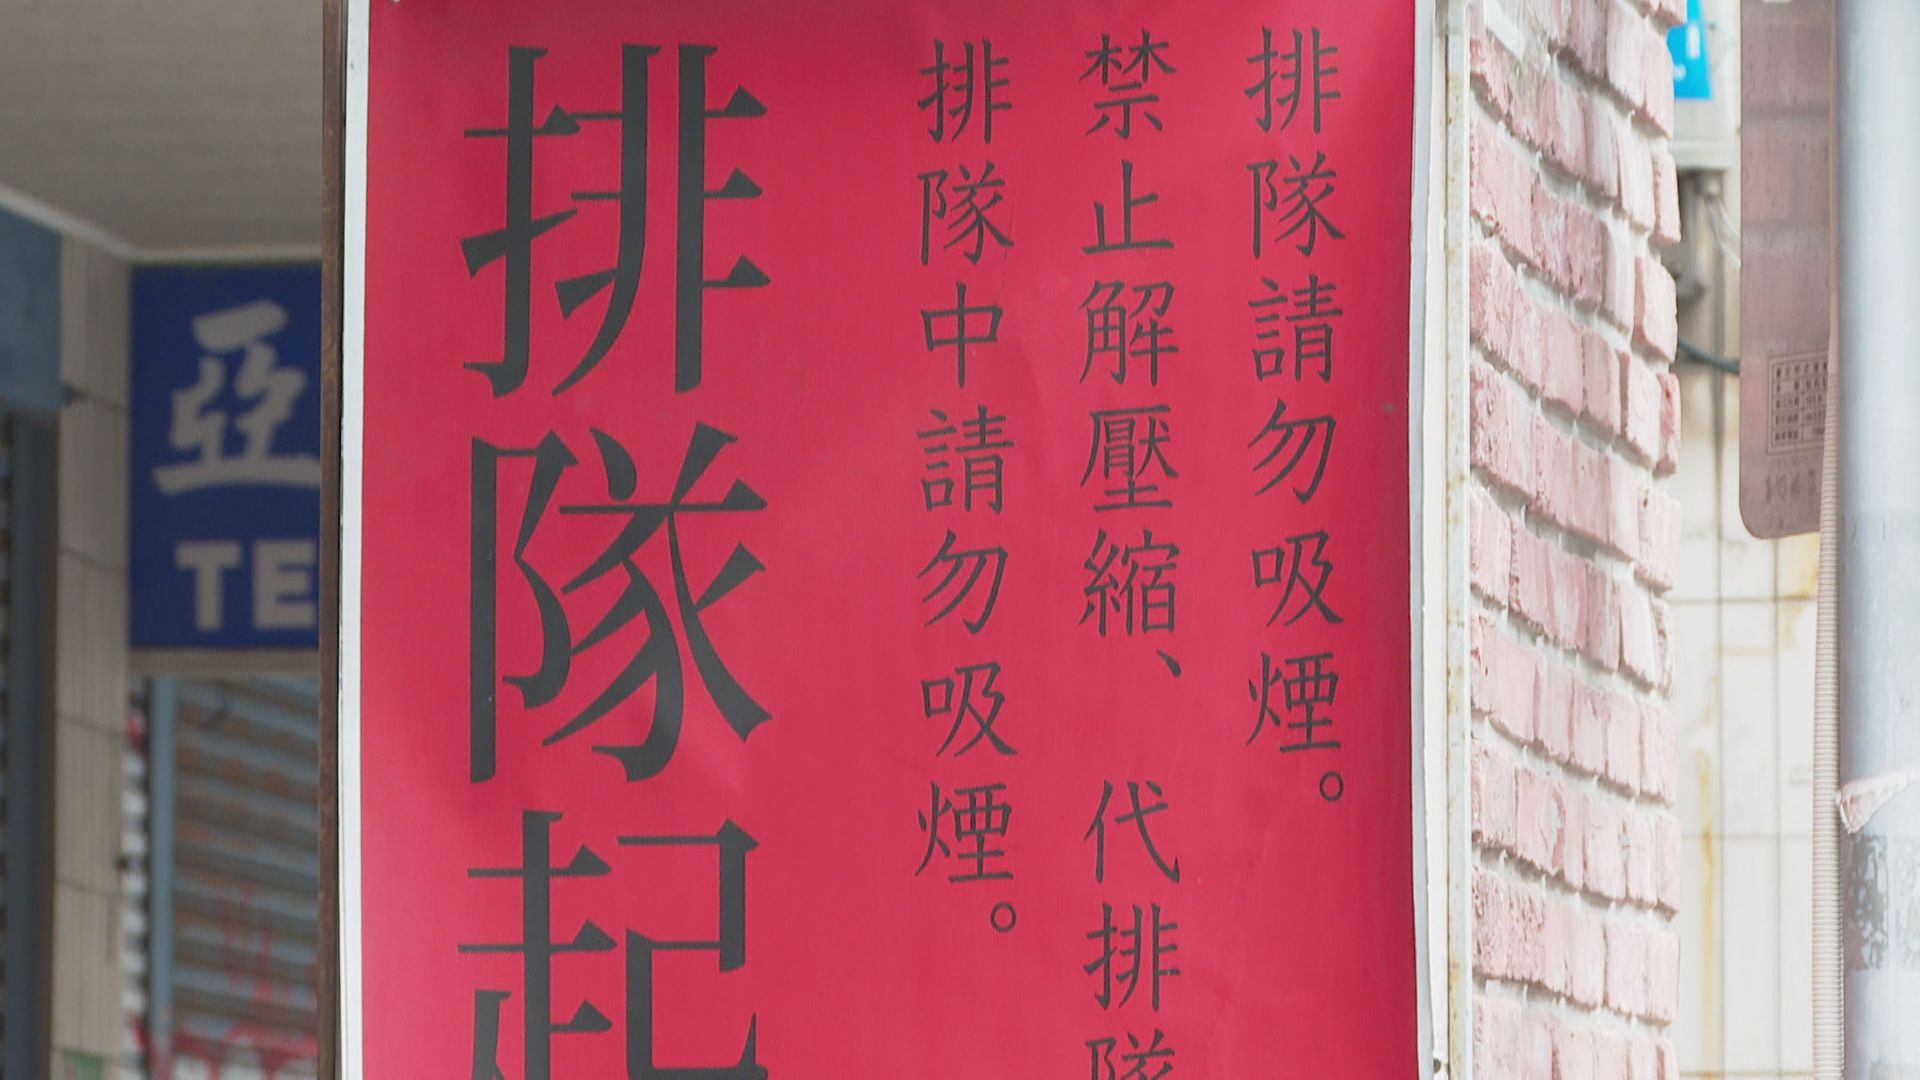 排隊請勿吸煙。
禁止解壓縮、代排隊
排隊中請勿吸煙。
排隊起
亞
TE